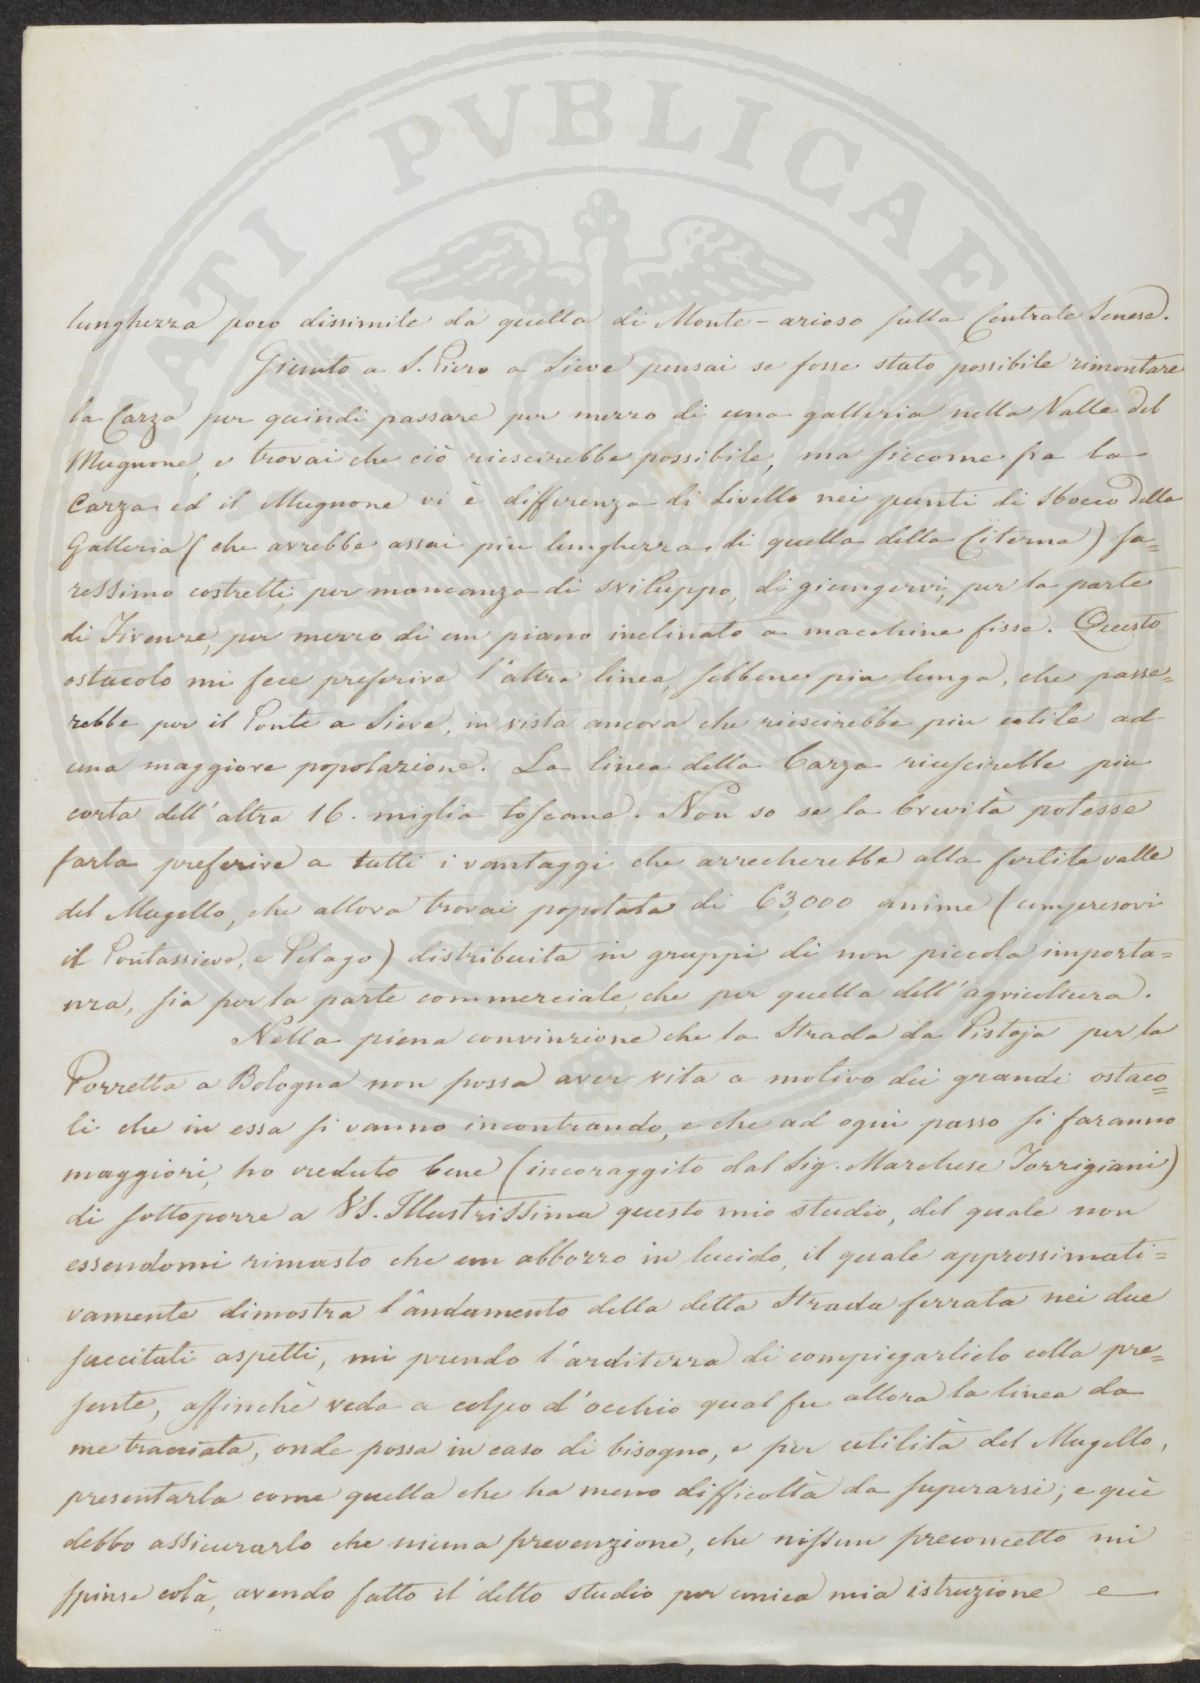 lunghezza poco dissimile da quella di Monte-arioso sulla Centrale Senese.
Giunto a S. Piero a Sieve pensai se fosse stato possibile rimontare
la Carza per quindi passare per mezzo di una galleria nella Valle del
Mugnone, e trovai che ciò riescirebbe possibile, ma siccome fra la
Carza ed il Mugnone vi è differenza di livello nei punti di sbocco della
Galleria (che avrebbe assai piu lunghezza di quella della Citerna) sa=
ressimo costretti, per mancanza di sviluppo, di giungervi, per la parte
di Firenze, per mezzo di un piano inclinato a macchine fisse. Questo
ostacolo mi fece preferire l'altra linea, sebbene piu lunga, che passe=
rebbe per il Ponte a Sieve, in vista ancora che riescirebbe piu utile ad
una maggiore popolazione. La linea della Carza riuscirebbe piu
corta dell'altra 16. miglia toscane. Non so se la brevità potesse
farla preferire a tutti i vantaggi che arrecherebbe alla fertile valle
del Mugello, che allora trovai popolata di 63,000 anime (compresovi
il Pontassieve, e Pelago) distribuita in gruppi di non piccola importa=
nza, sia per la parte commerciale che per quella dell'agricultura.
Nella piena convinzione che la Strada da Pistoja per la
Porretta a Bologna non possa aver vita a motivo dei grandi ostaco=
li che in essa si vanno incontrando, e che ad ogni passo si faranno
maggiori, ho creduto bene (incoraggito dal Sig. Marchese Torrigiani)
di sottoporre a VS. Illustrissima questo mio studio, del quale non
essendomi rimasto che un abbozzo in lucido, il quale approssimati=
vamente dimostra l'andamento della detta Strada ferrata nei due
succitati aspetti, mi prendo l'arditezza di compiegarlielo colla pre=
sente, affinchè veda a colpo d'occhio qual fu allora la linea da
me tracciata, onde possa in caso di bisogno, e per utilità del Mugello,
presentarla come quella che ha meno difficoltà da superarsi; e quì
debbo assicurarlo che niuna prevenzione, che nissun preconcetto mi
spinse colà, avendo fatto il detto studio per unica mia istruzione e
PUBLICAE